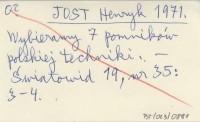 JOST Henryk 1971.
Wybieramy 7 pomników
polskiej techniki. —
Światowid 19, nr 35:
3-4.